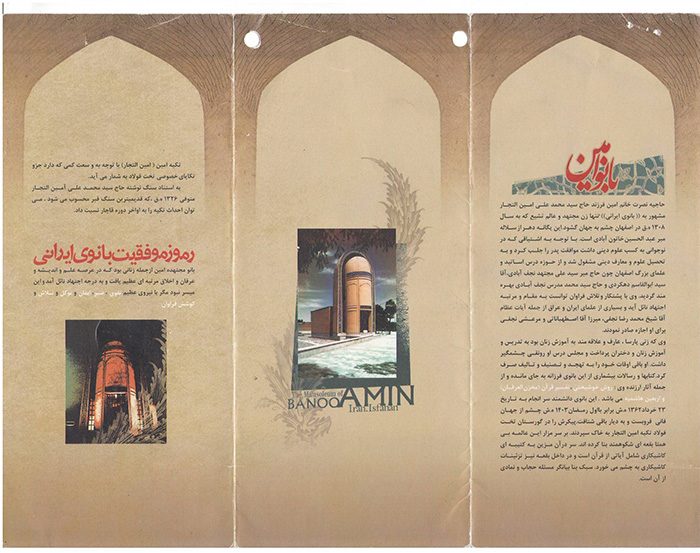 بانو امین
حاجیه نصرت خانم امین فرزند حاج سید محمد علی امین التجار
مشهور به ((بانوی ایرانی)) تنها زن مجتهد و عالم تشیع که به سال
۱۳۰۸ ه.ق در اصفهان چشم به جهان گشود. این یگانه دهر از سلاله
میر عبد الحسین خاتون آبادی است. بـا توجـه بـه اشتیاقی که در
نوجوانی به کسب علوم دینی داشت موافقت پدر را جلب کـرد و به
تحصیل علوم و معارف دینی مشغول شد و از حوزه درس اساتید و
علمای بزرگ اصفهان چون حاج میر سید علی مجتهد نجف آبادی، آقا
سید ابوالقاسم دهکردی و حاج سید محمد مدرس نجف آبادی بهره
مند گردید. وی با پشتکار و تلاش فراوان توانست به مقـام و مرتبه
اجتهاد نائل آید و بسیاری از علمای ایران و عراق از جمله آیات عظام
آقا شیخ محمد رضا نجفی، میرزا آقا اصطهباناتی و مرعشی نجفی
برای او اجازه صادر نمودند.
وی که زنی پارسا، عارف و علاقه مند به آموزش زنان بود به تدریس و
آموزش زنان و دختران پرداخت و مجلس درس او رونقـی چشمگیر
داشت. او باقی اوقات خود را به تهجـد و تصنیف و تـالیف صـرف
کرد. کتابها و رسالات بیشماری از این بانوی فرزانه به جای مانده و از
جمله آثار ارزنده وی (روش خوشبختی، تفسیر قرآن (مخزن العرفان)
و اربعین هاشمیه می باشد. این بانوی دانشمند سر انجام به تاریخ
۲۳ خرداد ۱۳۶۲ ه.ش برابر با اول رمضان ۱۴۰۳ ه.ق چشم از جهان
فانی فروبست و به دیار باقی شتافت. پیکرش را در گورستان تخت
فولاد تکیه امین التجار به خاک سپردند. بر سر مزار ایـن عالمـه بی
همتا بقعه ای شکوهمند بنا کرده اند. سر درآن مزین به کتیبه ای
کاشیکاری شامل آیاتی از قرآن است و در داخل بقعه نیز تزئینات
کاشیکاری به چشم می خورد. سبک بنا بیانگر مسئله حجاب و نمادی
از آن است.
The Mausoleum of
BANOO AMIN
Iran.Isfahan
تکیه امین (امین التجار) با توجه به و سعت کمی که دارد جزو
تکایای خصوصی تخت فولاد به شمار می آید.
به استناد سنگ نوشته حاج سید محمـد علـی امین التجار
متوفی ۱۳۲۶ ه.ق که قدیمیترین سنگ قبر محسوب می شود، می
توان احداث تکیه را به اواخر دوره قاجار نسبت داد.
رموز موفقیت بانوی ایرانی
بانو مجتهده امین ازجمله زنانی بود که در عرصه علـم و اندیشـه و
عرفان و اخلاق مرتبه ای عظیم یافت و به درجه اجتهاد نائل آمد و این
میسر نبود مگر با نیروی عظیم تقوی، صبر، ایمان و توکل و تلاش و
کوشش فراوان.